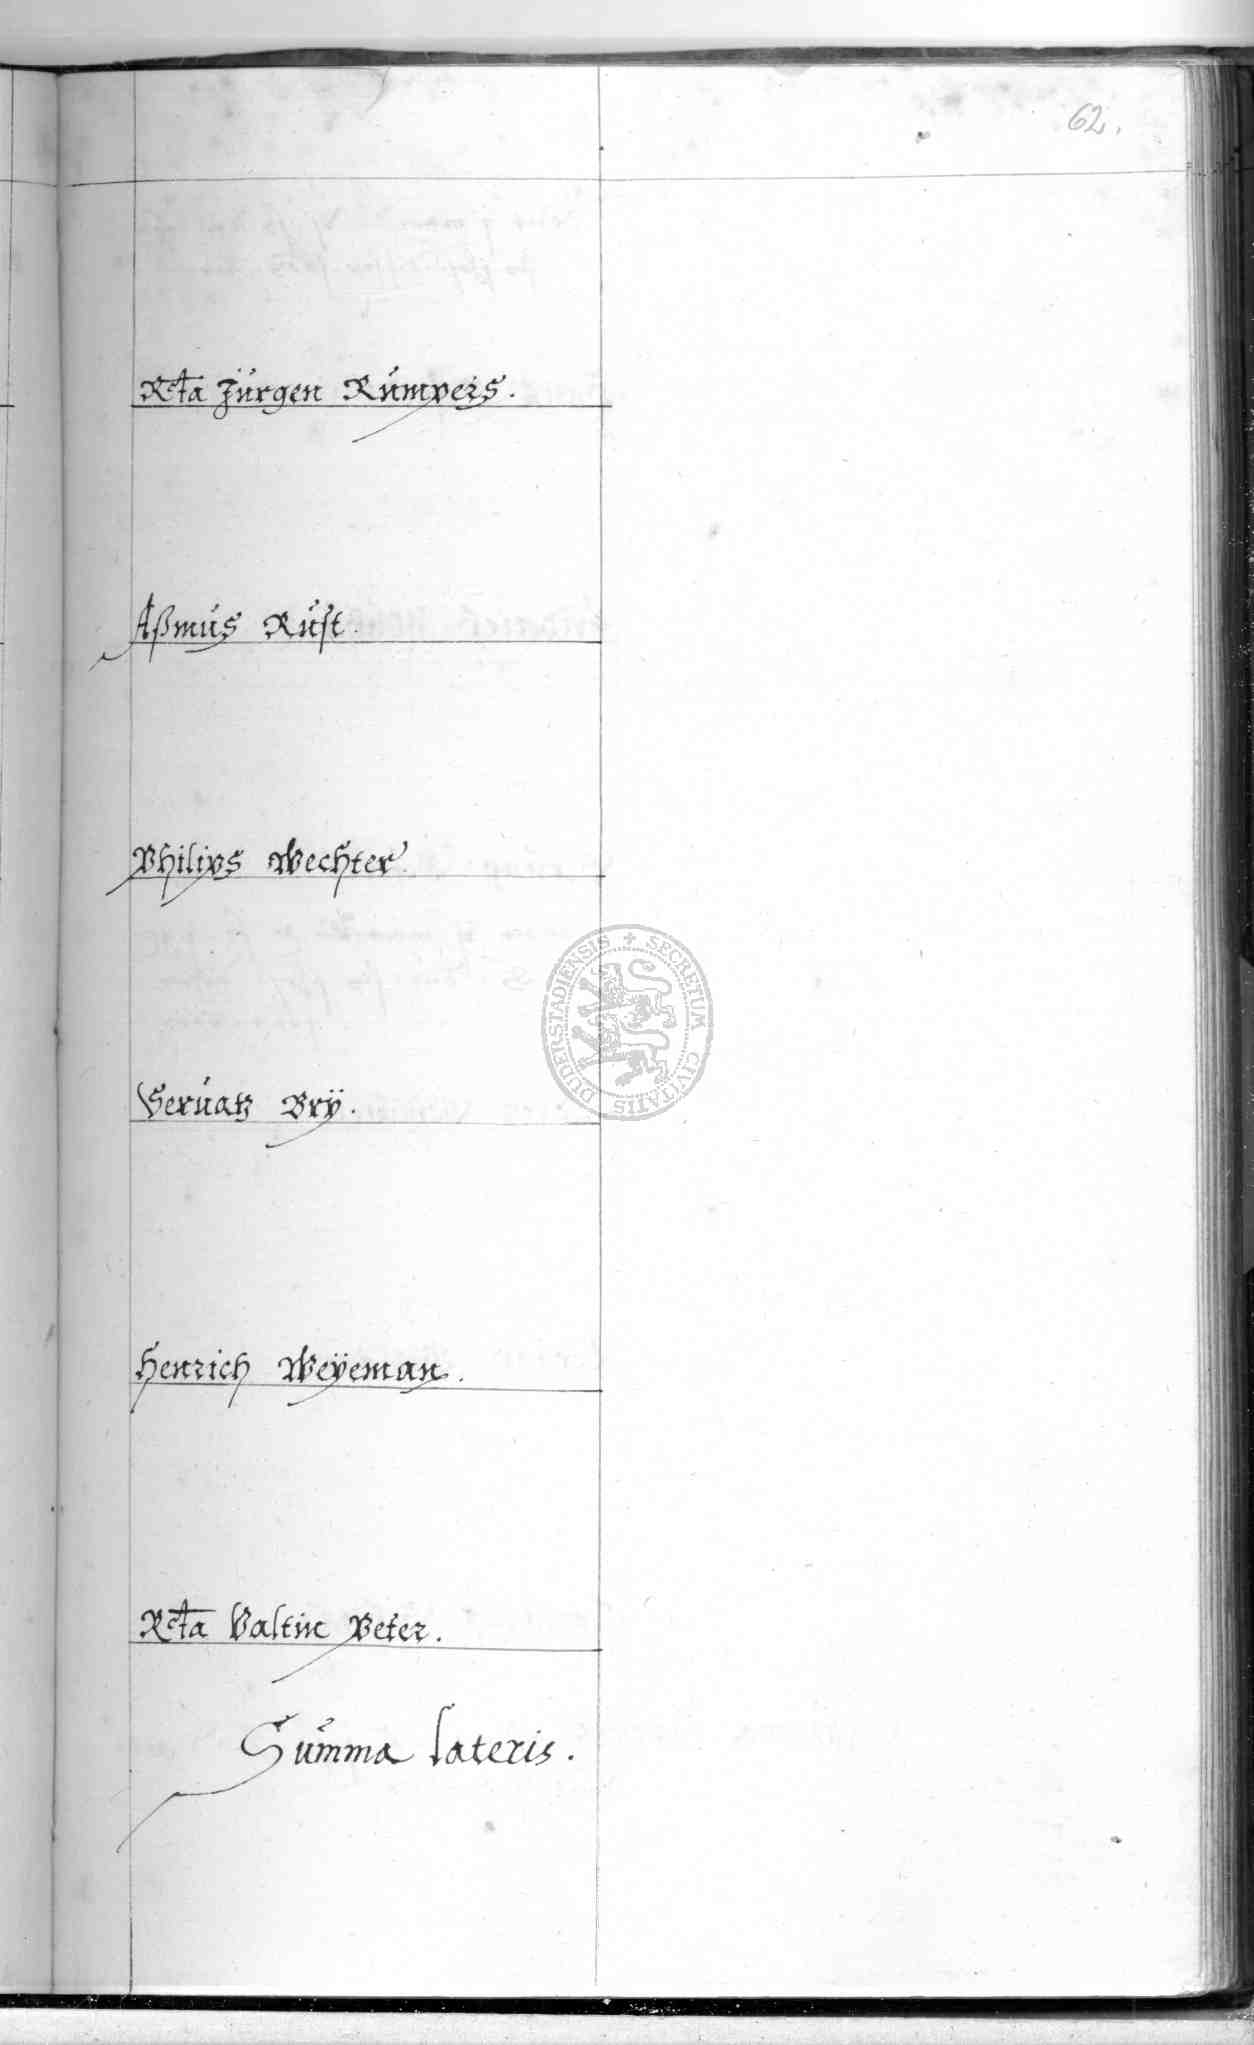 62.
Rcta Jürgen Rümpeis.
Aßmus Rust.
Philips Wechter.
Seruatz Brÿ.
Henrich Weÿeman.
Rcta Valtin Peter.
Summa lateris.
SECRETUM CIVITATIS DUDERSTADIENSIS